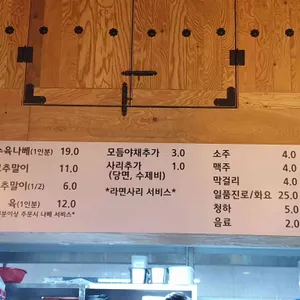 수육나베(1인분) 19.0
추말이 11.0
추말이(1/2) 6.0
육(1인분) 12.0
분이상 주문시 나베 서비스*
모듬야채추가 3.0
사리추가 1.0
(당면, 수제비)
*라면사리 서비스*
소주 4.0
맥주 4.0
막걸리 4.0
일품진로/화요 25.0
청하 5.0
음료 2.0